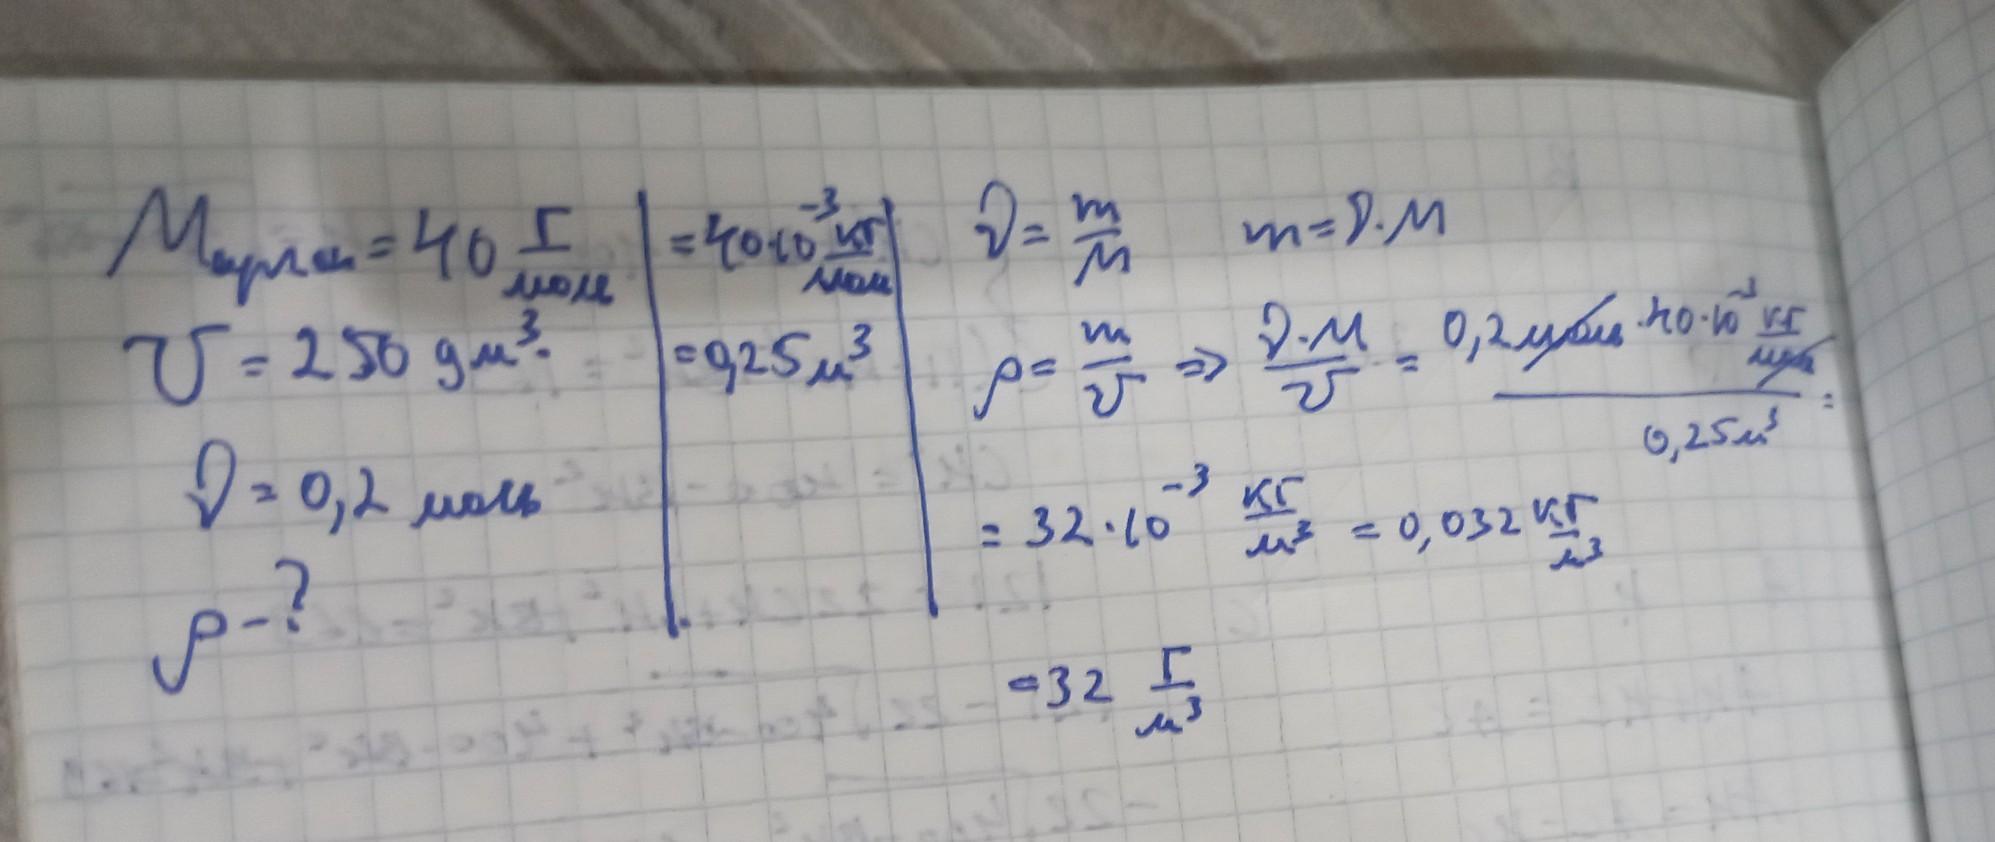 M аргон = 40 г/моль = 40·10⁻³ кг/моль
V = 250 дм³. = 0,25 м³
ν = 0,2 моль
ρ - ?
ν = m/M m = ν·M
ρ = m/V => ν·M/V = 0,2 моль·40·10⁻³ кг/моль / 0,25 м³ =
= 32·10⁻³ кг/м³ = 0,032 кг/м³
= 32 г/м³